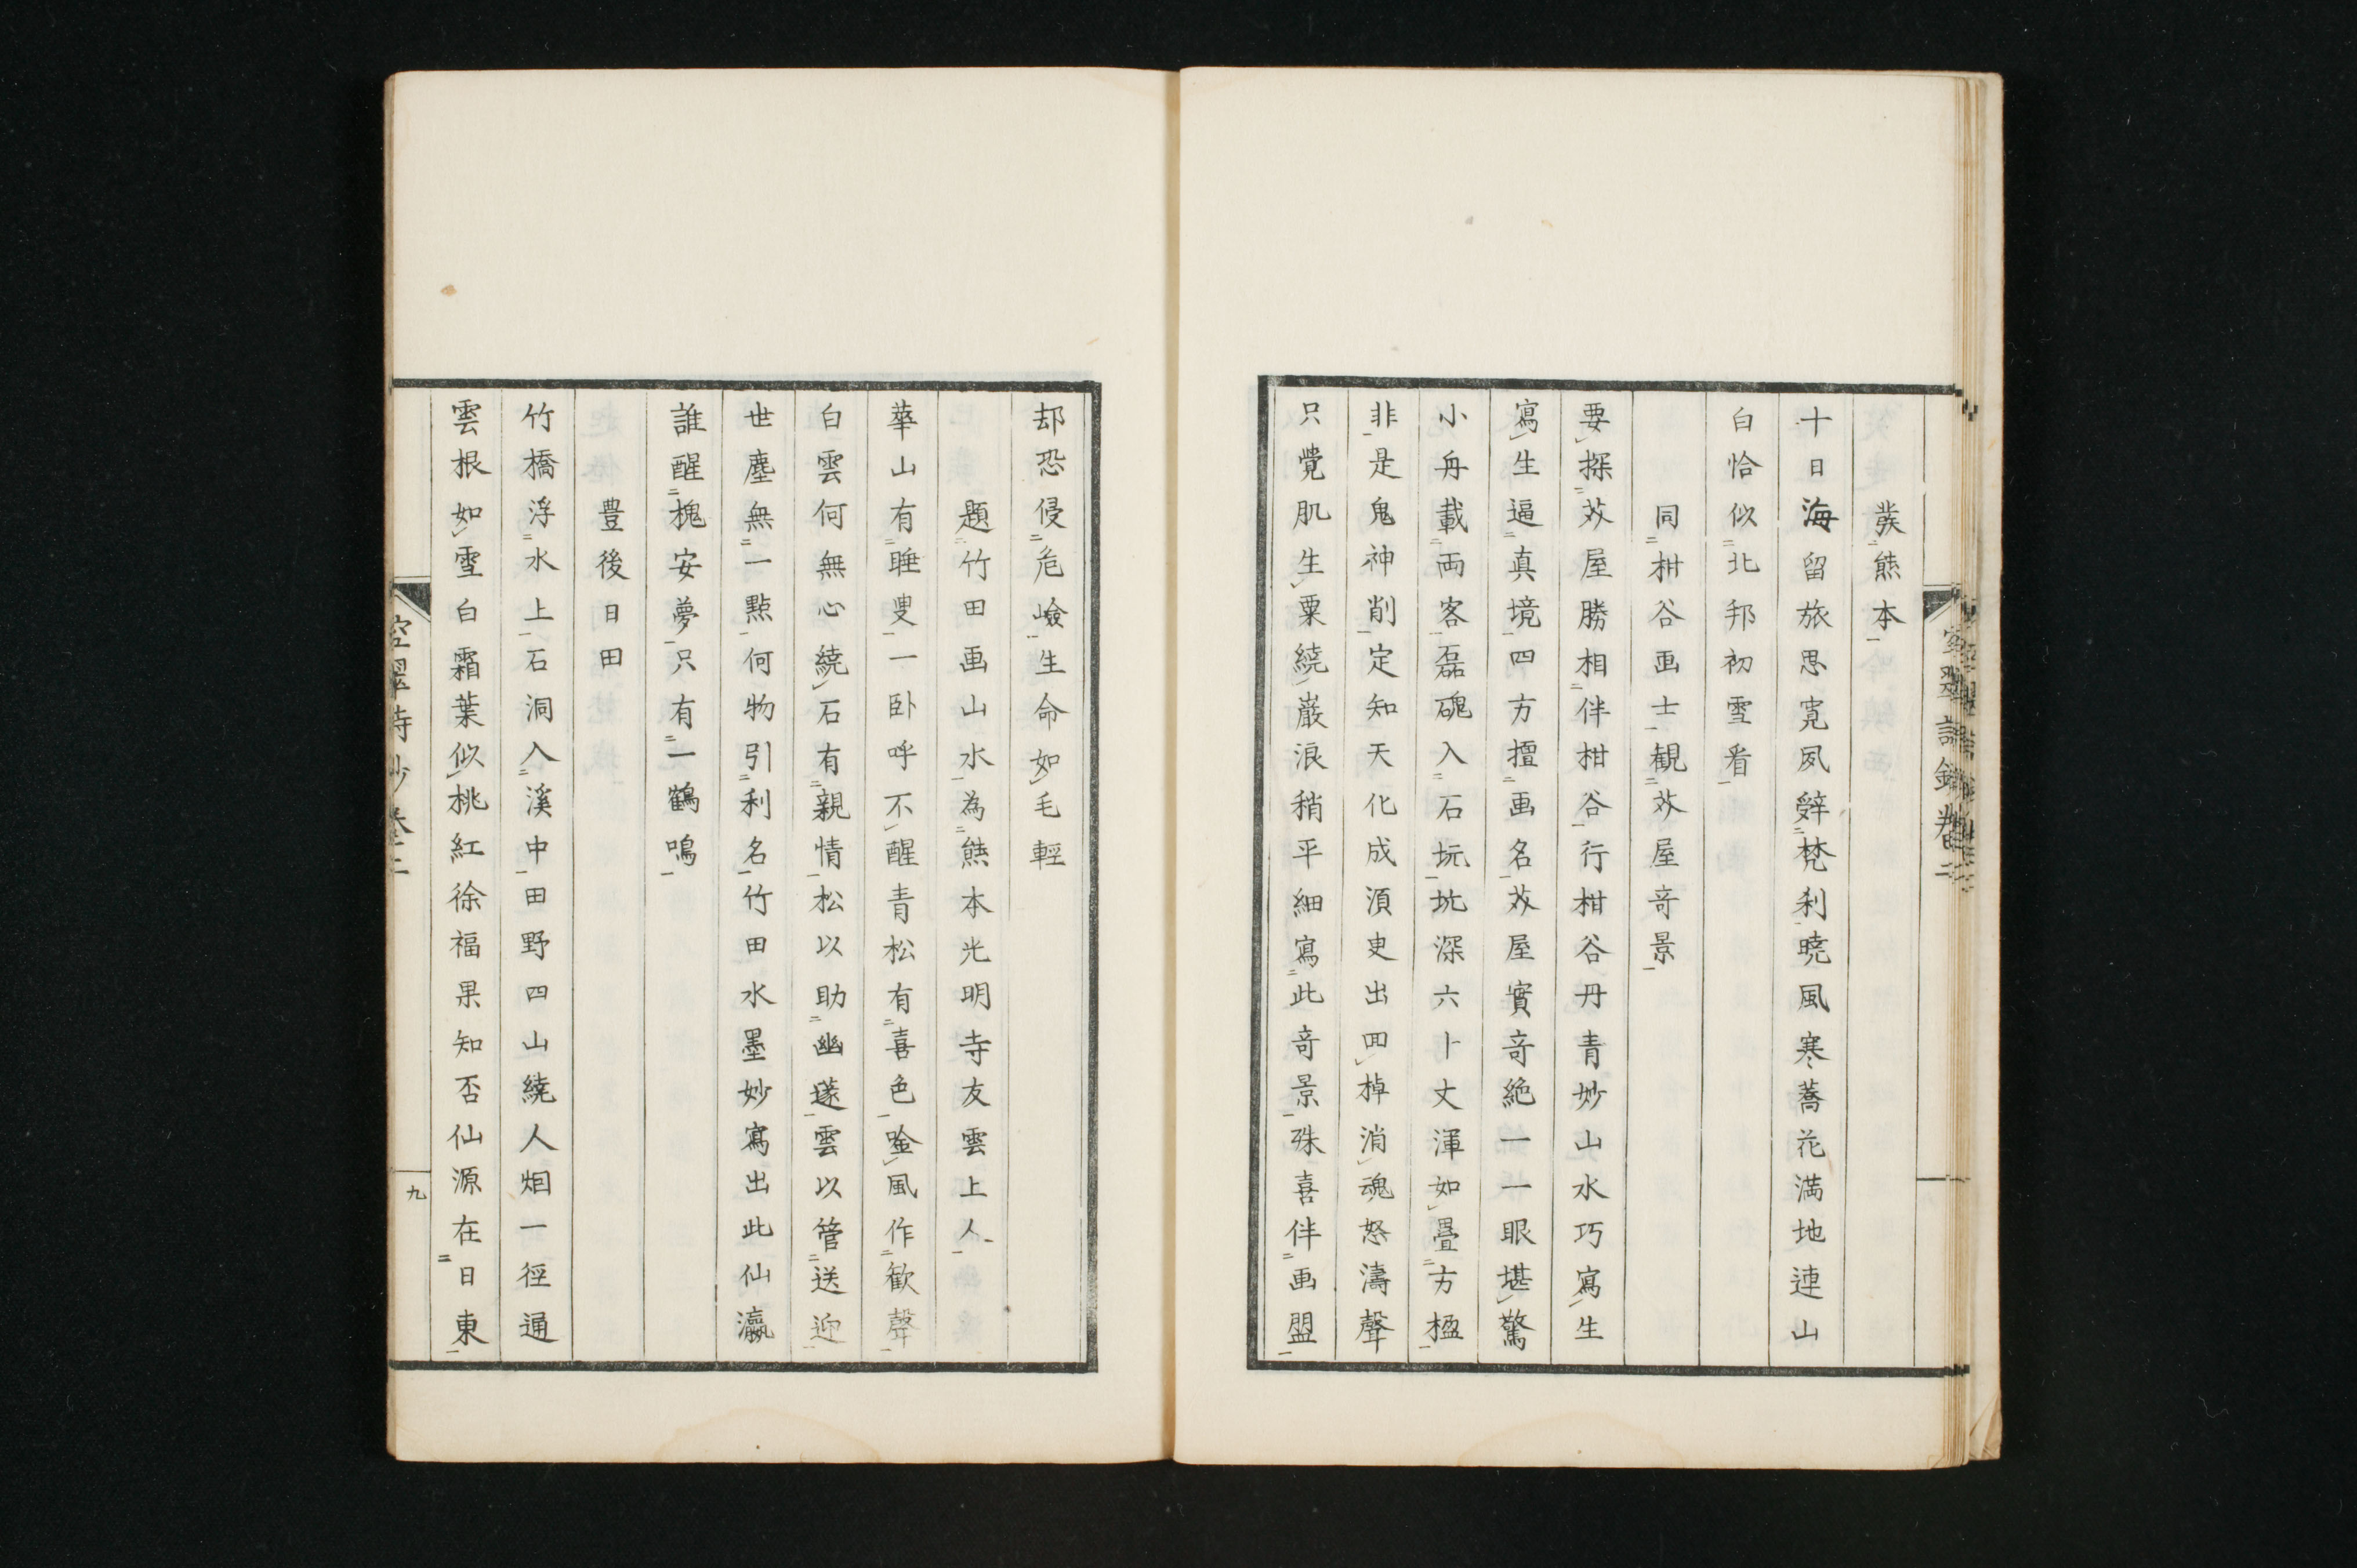 發熊本
十日海留旅思寛夙辤梵刹曉風寒蕎花満地連山
白恰似北邦初雪看
同柑谷画士観芥屋竒景
要探芥屋勝相伴柑谷行柑谷丹青妙山水巧寫生
寫生逼真境四方擅画名芥屋實竒絶一一眼堪驚
小舟載両客磊磈入石坑坑深六十丈渾如疊方楹
非是鬼神削定知天化成湏臾出回棹消魂怒濤聲
只覺肌生粟繞巌浪稍平細寫此竒景殊喜伴画盟
却恐侵危嶮生命如毛輕
題竹田画山水為熊本光明寺友雲上人
華山有睡叟一卧呼不醒青松有喜色唫風作歓聲
白雲何無心繞石有親情松以助幽邃雲以管送迎
世塵無一點何物引利名竹田水墨妙寫出此仙瀛
誰醒槐安夢只有一鶴鳴
豊後日田
竹橋浮水上石洞入溪中田野四山繞人烟一徑通
雲根如雪白霜葉似桃紅徐福果知否仙源在日東
空翠詩鈔巻二
九